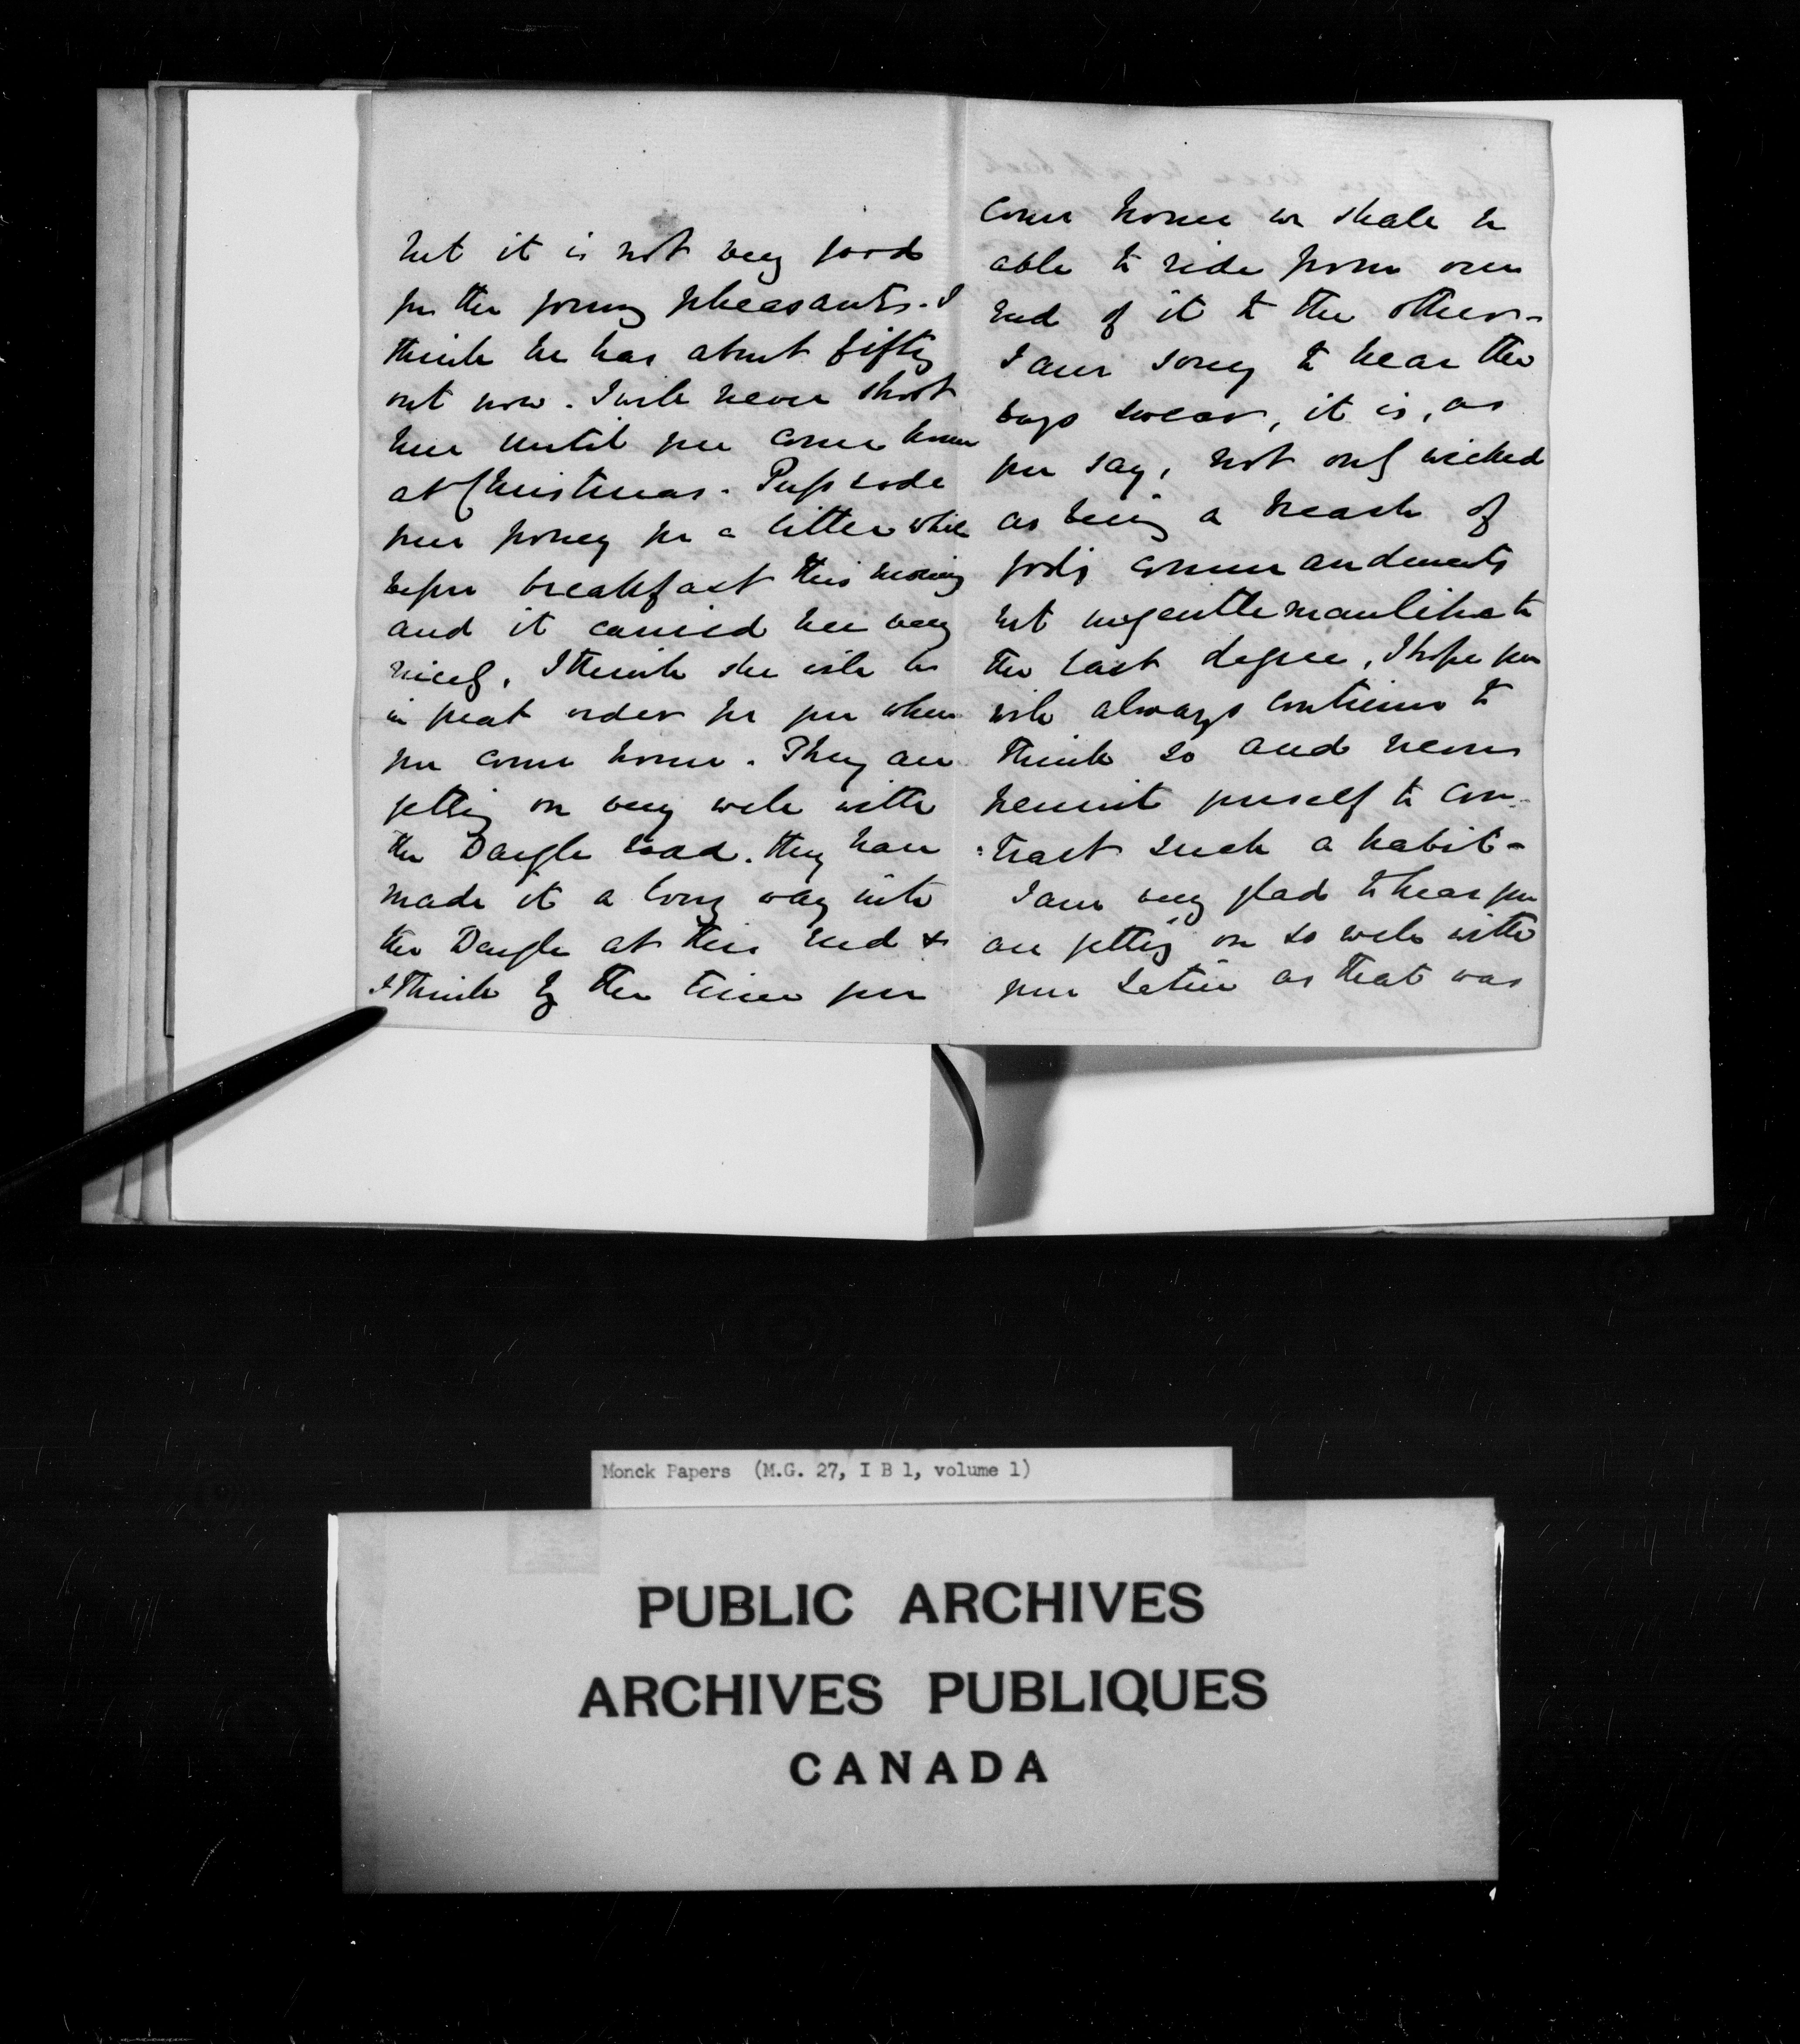 but it is not very good
for the young pheasants. I
think he has about fifty
out now. I will never shoot
here until you come home
at Christmas. Puss rode
your poney for a little while
before breakfast this morning
and it carried her very
nicely, I think she will be
in great order for you when
you come home. They are
getting on very well with
the Dargle road. they have
made it a long way into
the Dargle at this end &
I think by the time you
come home we shall be
able to ride from one
end of it to the other -
I am sorry to hear the
boys swear, it is, as
you say, not only wicked
as being a breach of
God's commandments
but ungentlemanlike to
the last degree, I hope you
will always continue to
think so and never
permit yourself to con-
:tract such a habit -
I am very glad to hear you
are getting on so well with
your Latin as that was
Monck Papers (M.G. 27, I B 1, volume 1)
PUBLIC ARCHIVES
ARCHIVES PUBLIQUES
CANADA